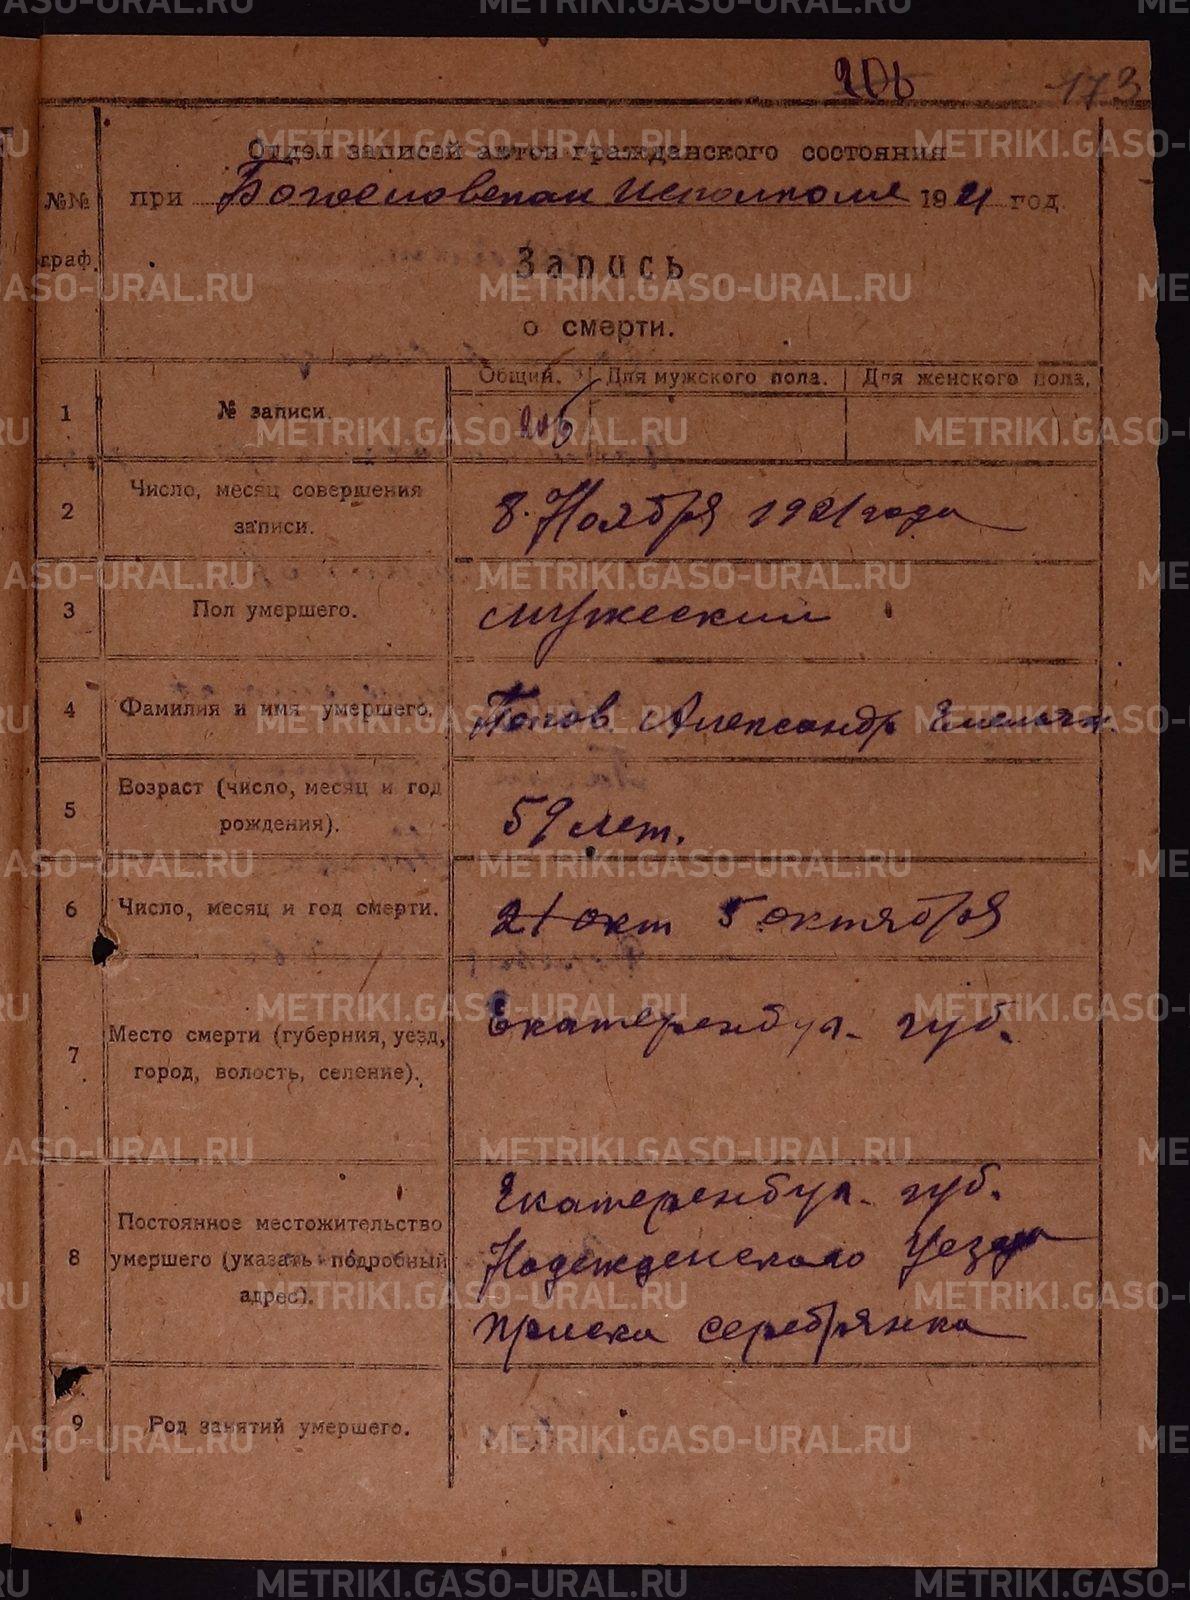 206 173
Отдел записей актов гражданского состояния
№№ при Богословском Исполкоме 1921 год
граф.
Запись
о смерти.
Общий. Для мужского пола. Для женского пола.
1 № записи. 206
2 Число, месяц совершения записи. 8. Ноября 1921 года
3 Пол умершего. мужеский
4 Фамилия и имя умершего. Попов Александр Емельян.
5 Возраст (число, месяц и год рождения). 59 лет.
6 Число, месяц и год смерти. 21 окт 5 октября
7 Место смерти (губерния, уезд, город, волость, селение). Екатеренбур. губ.
8 Постоянное местожительство умершего (указать подробный адрес). Екатеренбур. губ.
Надежденского уезда
прииска серебрянка
9 Род занятий умершего.
METRIKI.GASO-URAL.RU